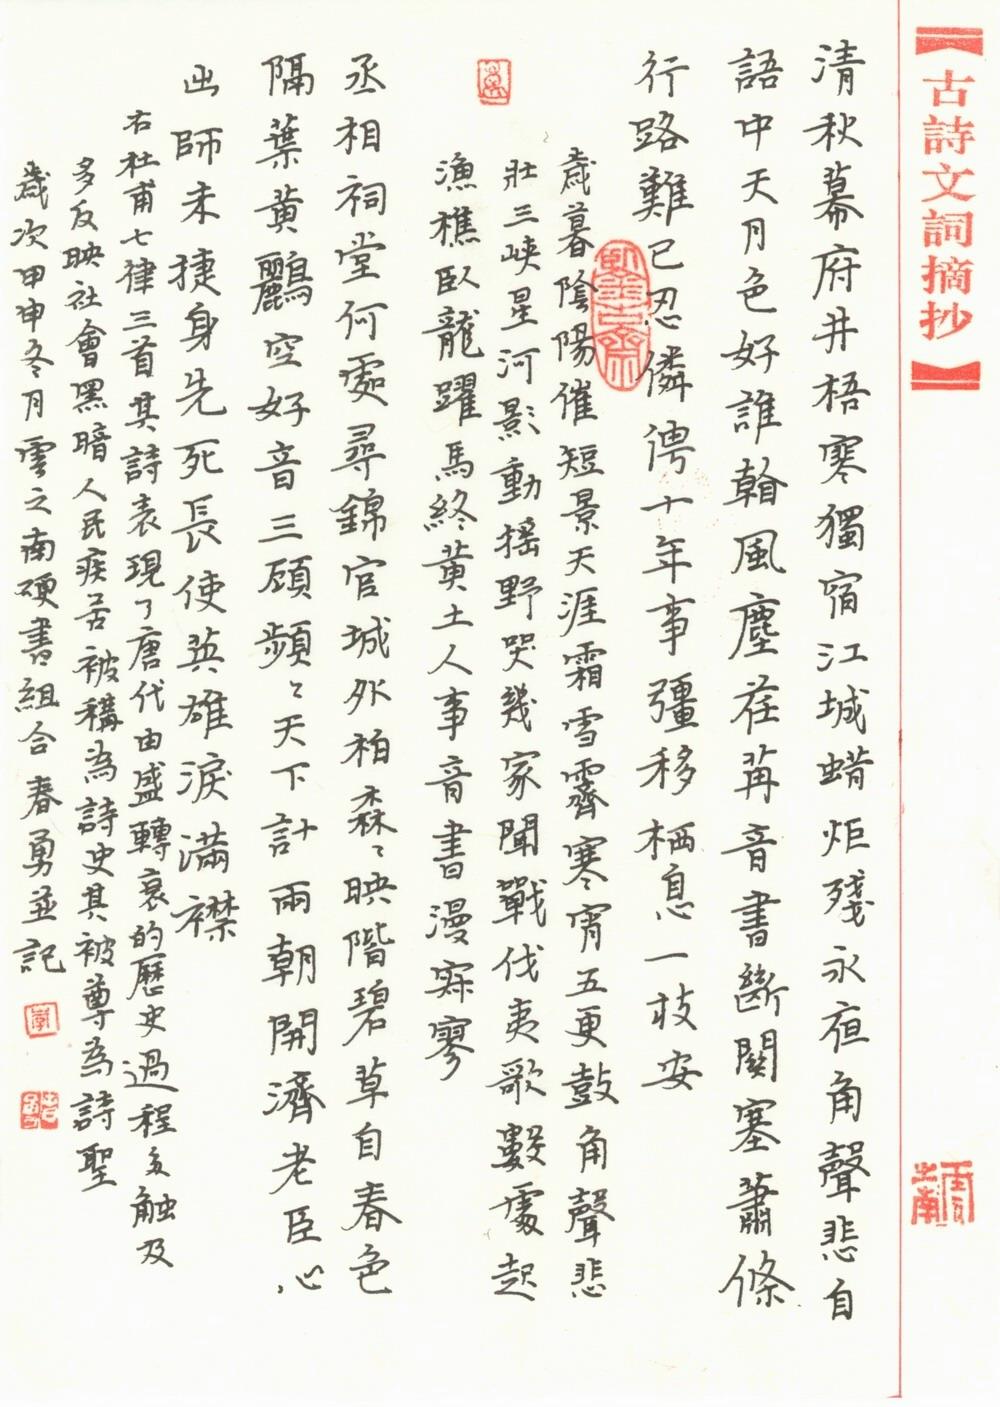 古詩文詞摘抄
清秋幕府井梧寒獨宿江城蜡炬殘永夜角聲悲自
語中天月色好誰翰風塵荏苒音書斷關塞蕭條
行路難已忍伶俜十年事彊移栖息一枝安
歲暮陰陽催短景天涯霜雪霽寒宵五更鼓角聲悲
壯三峽星河影動搖野哭幾家聞戰伐夷歌數處起
漁樵臥龍躍馬終黃土人事音書漫寂寥
丞相祠堂何處尋錦官城外柏森〻映階碧草自春色
隔葉黄鸝空好音三顧頻〻天下計兩朝開濟老臣心
出師未捷身先死長使英雄淚滿襟
右杜甫七律三首其詩表現了唐代由盛轉衰的歷史過程多觸及
多反映社會黑暗人民疾苦被稱為詩史其被尊為詩聖
歲次甲申冬月雲之南硬書組合春勇並記
雲之南